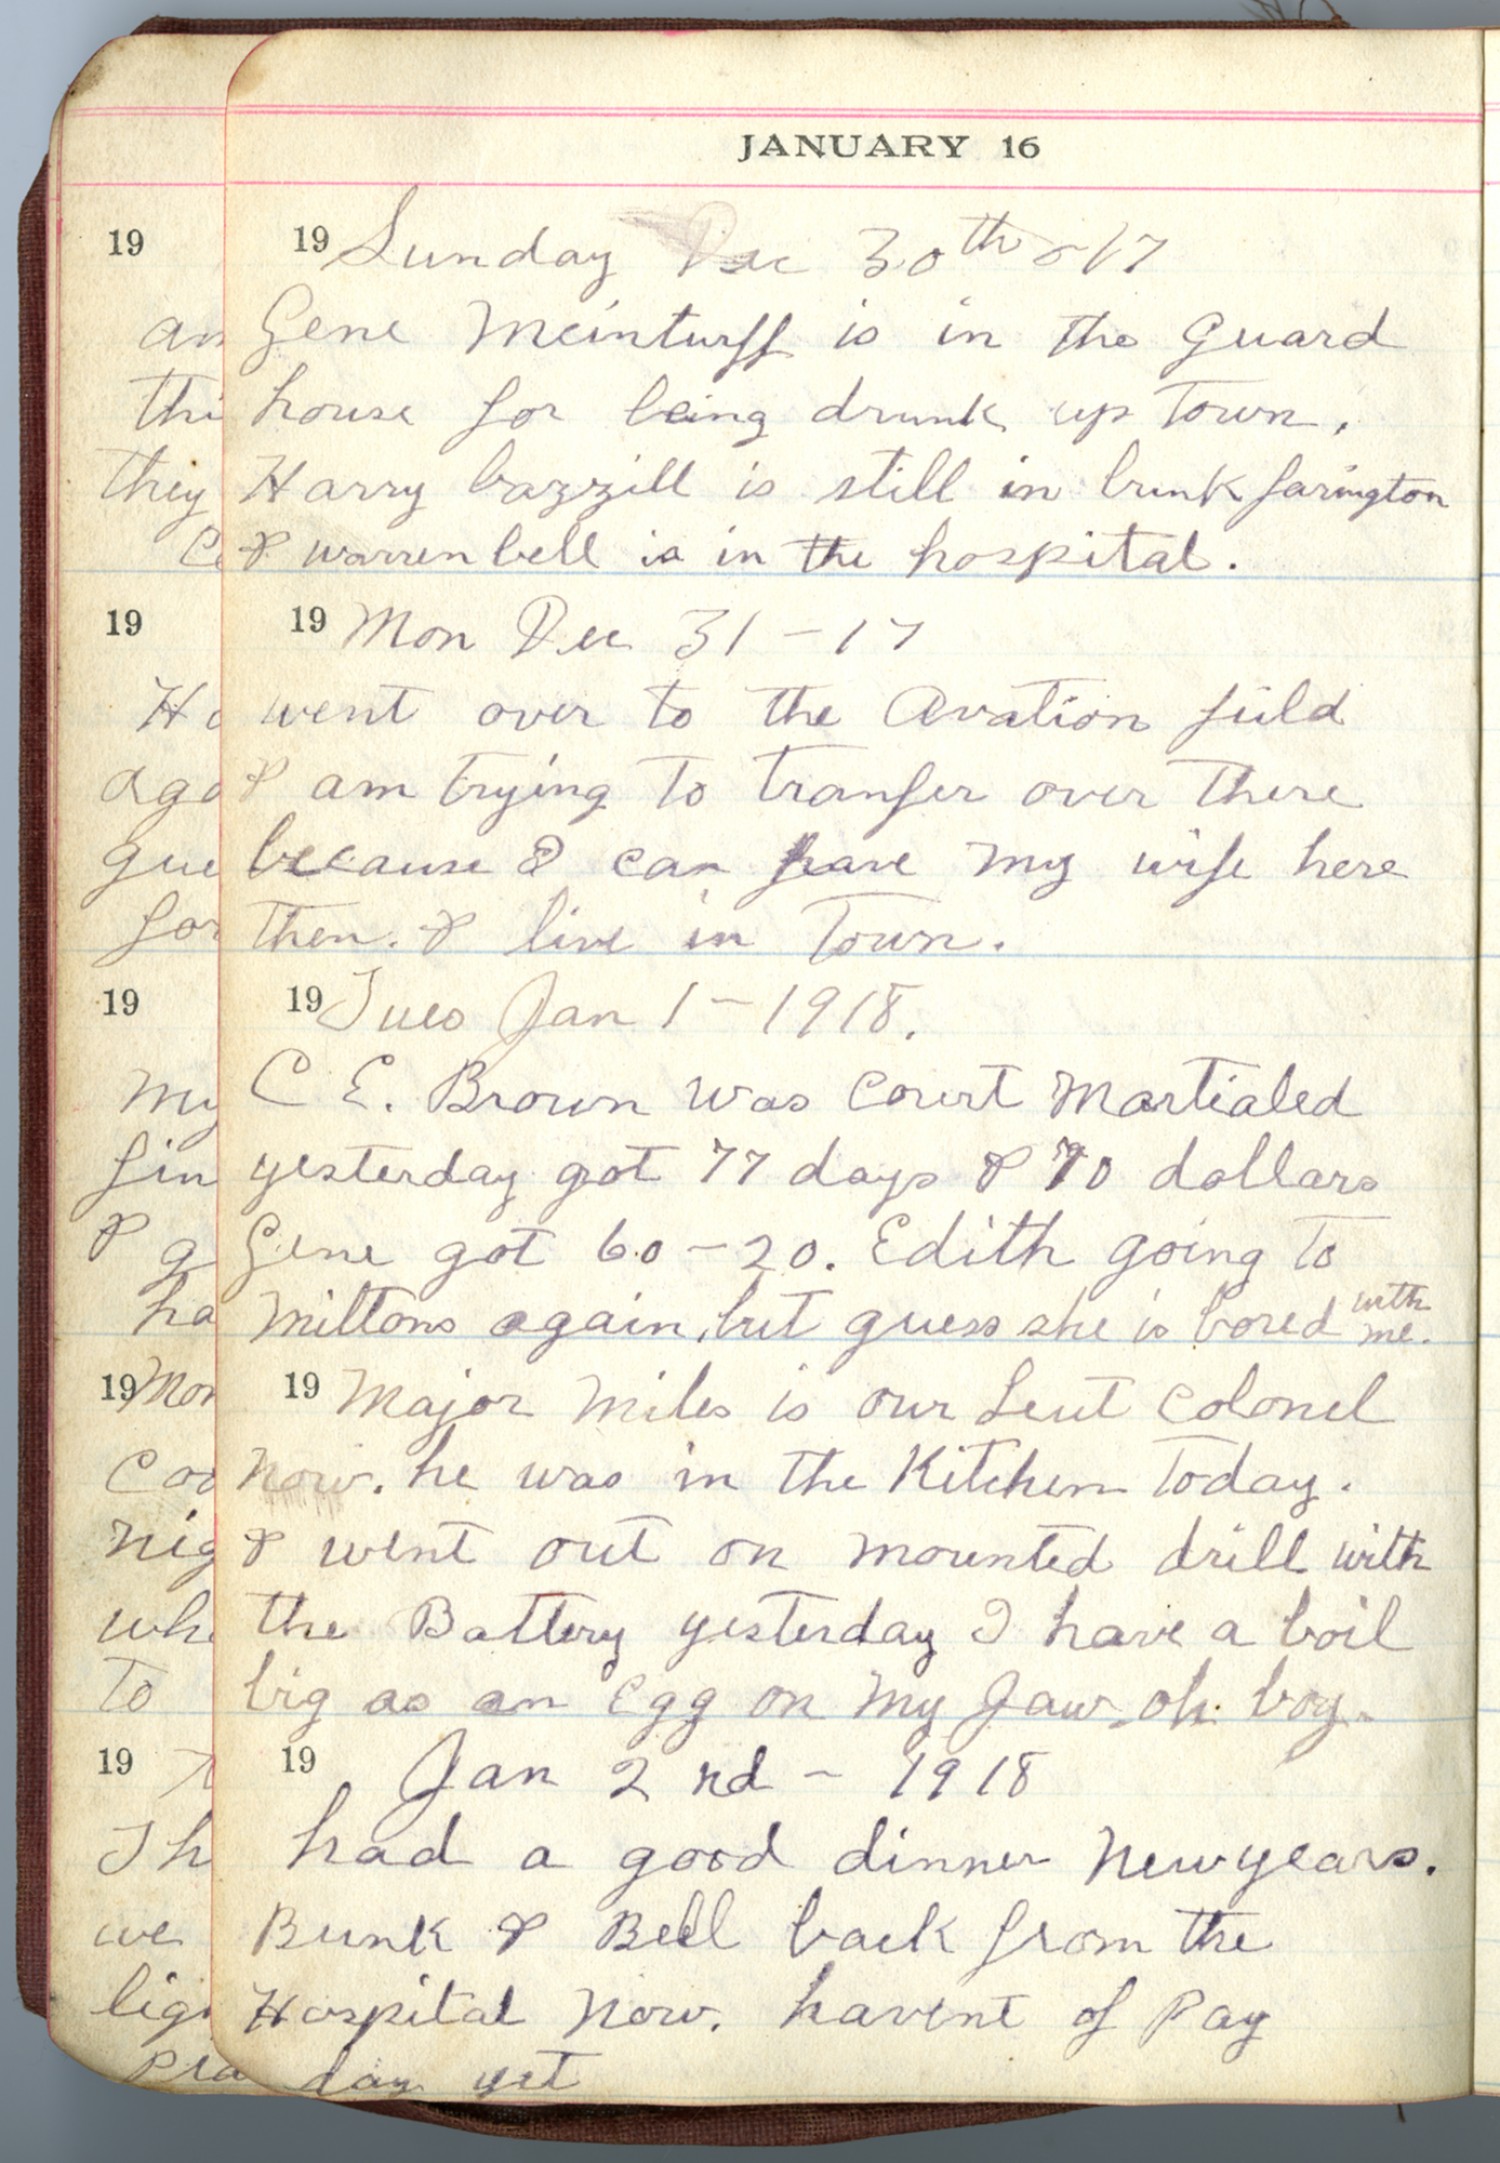 JANUARY 16
19 Sunday Dec 30th - 17
Gene Mcinturff is in the guard
house for being drunk up town.
Harry bazzill is still in bunk farington
& warren bell is in the hospital.
19 Mon Dec 31 - 17
went over to the Avation field
& am trying to tranfer over there
because I can have my wife here
then. & live in Town.
19 Tues Jan 1 - 1918.
C E. Brown was court martialed
yesterday got 77 days & 70 dollars
Gene got 60 - 20. Edith going to
Miltons again, but guess she is bored with me.
19 Major Miles is our Leut Colonel
now. he was in the Kitchen today.
& went out on mounted drill with
the Battery yesterday I have a boil
big as an Egg on my Jaw oh boy.
19 Jan 2 nd - 1918
had a good dinner Newyears.
Bunk & Bell back from the
Hospital now. havent of Pay
day yet
19
an
thi
they
19
Ho
ago
gue
for
19
my
fin
& g
ha
19 Mon
coo
nig
whe
To
19
Th
we
lig
pra